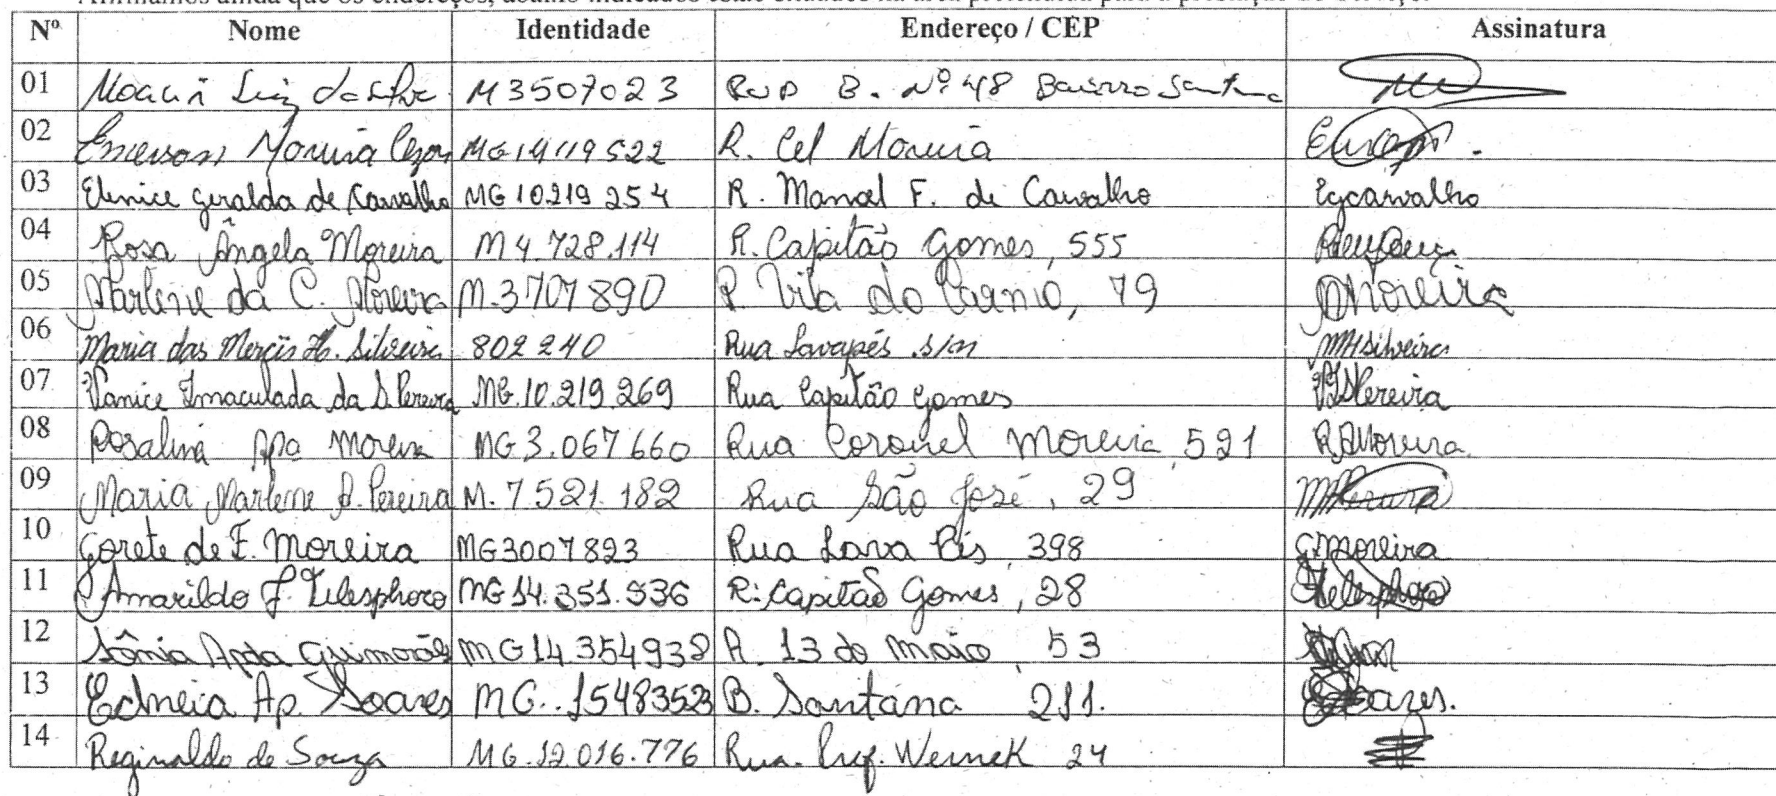 Afirmamos ainda que os endereços, abaixo indicados estão situados na área pretendida para a prestação do Serviço.
Nº Nome Identidade Endereço / CEP Assinatura
01 Moacir Luiz da Silva M3507023 Rua B. Nº 48 Bairro Santana
02 Emerson Moreira Cezar MG14119522 R. Cel Moreira
03 Elenice Geralda de Carvalho MG 10.219 254 R. Manoel F. de Carvalho Egcarvalho
04 Rosa Ângela Moreira M 4.728.114 R. Capitão Gomes, 555
05 Marlene da C. Moreira M.3707890 R. Vila do Carmo, 79 Moreira
06 Maria das Mercês H. Silveira 802240 Rua Lavapés s/n MHSilveira
07 Vanice Imaculada da S. Pereira MG.10.219.269 Rua Capitão Gomes VISPereira
08 Rosalina Apa Moreira MG3.067660 Rua Coronel Moreira 521 RAMoreira
09 Maria Marlene P. Pereira M.7.521.182 Rua São José, 29
10 Gorete de F. Moreira MG3007893 Rua Lava Pés 398 GMoreira
11 Amarildo J. Telesphoro MG 14.351.936 R: Capitão Gomes, 28 Telesphoro
12 Sônia Apda Guimarães MG14.354938 R. 13 de Maio, 53
13 Edneia Ap. Soares MG..1548352 B. Santana 211. Soares.
14 Reginaldo de Souza MG.12.016.776 Rua. Prof. Wernek 24